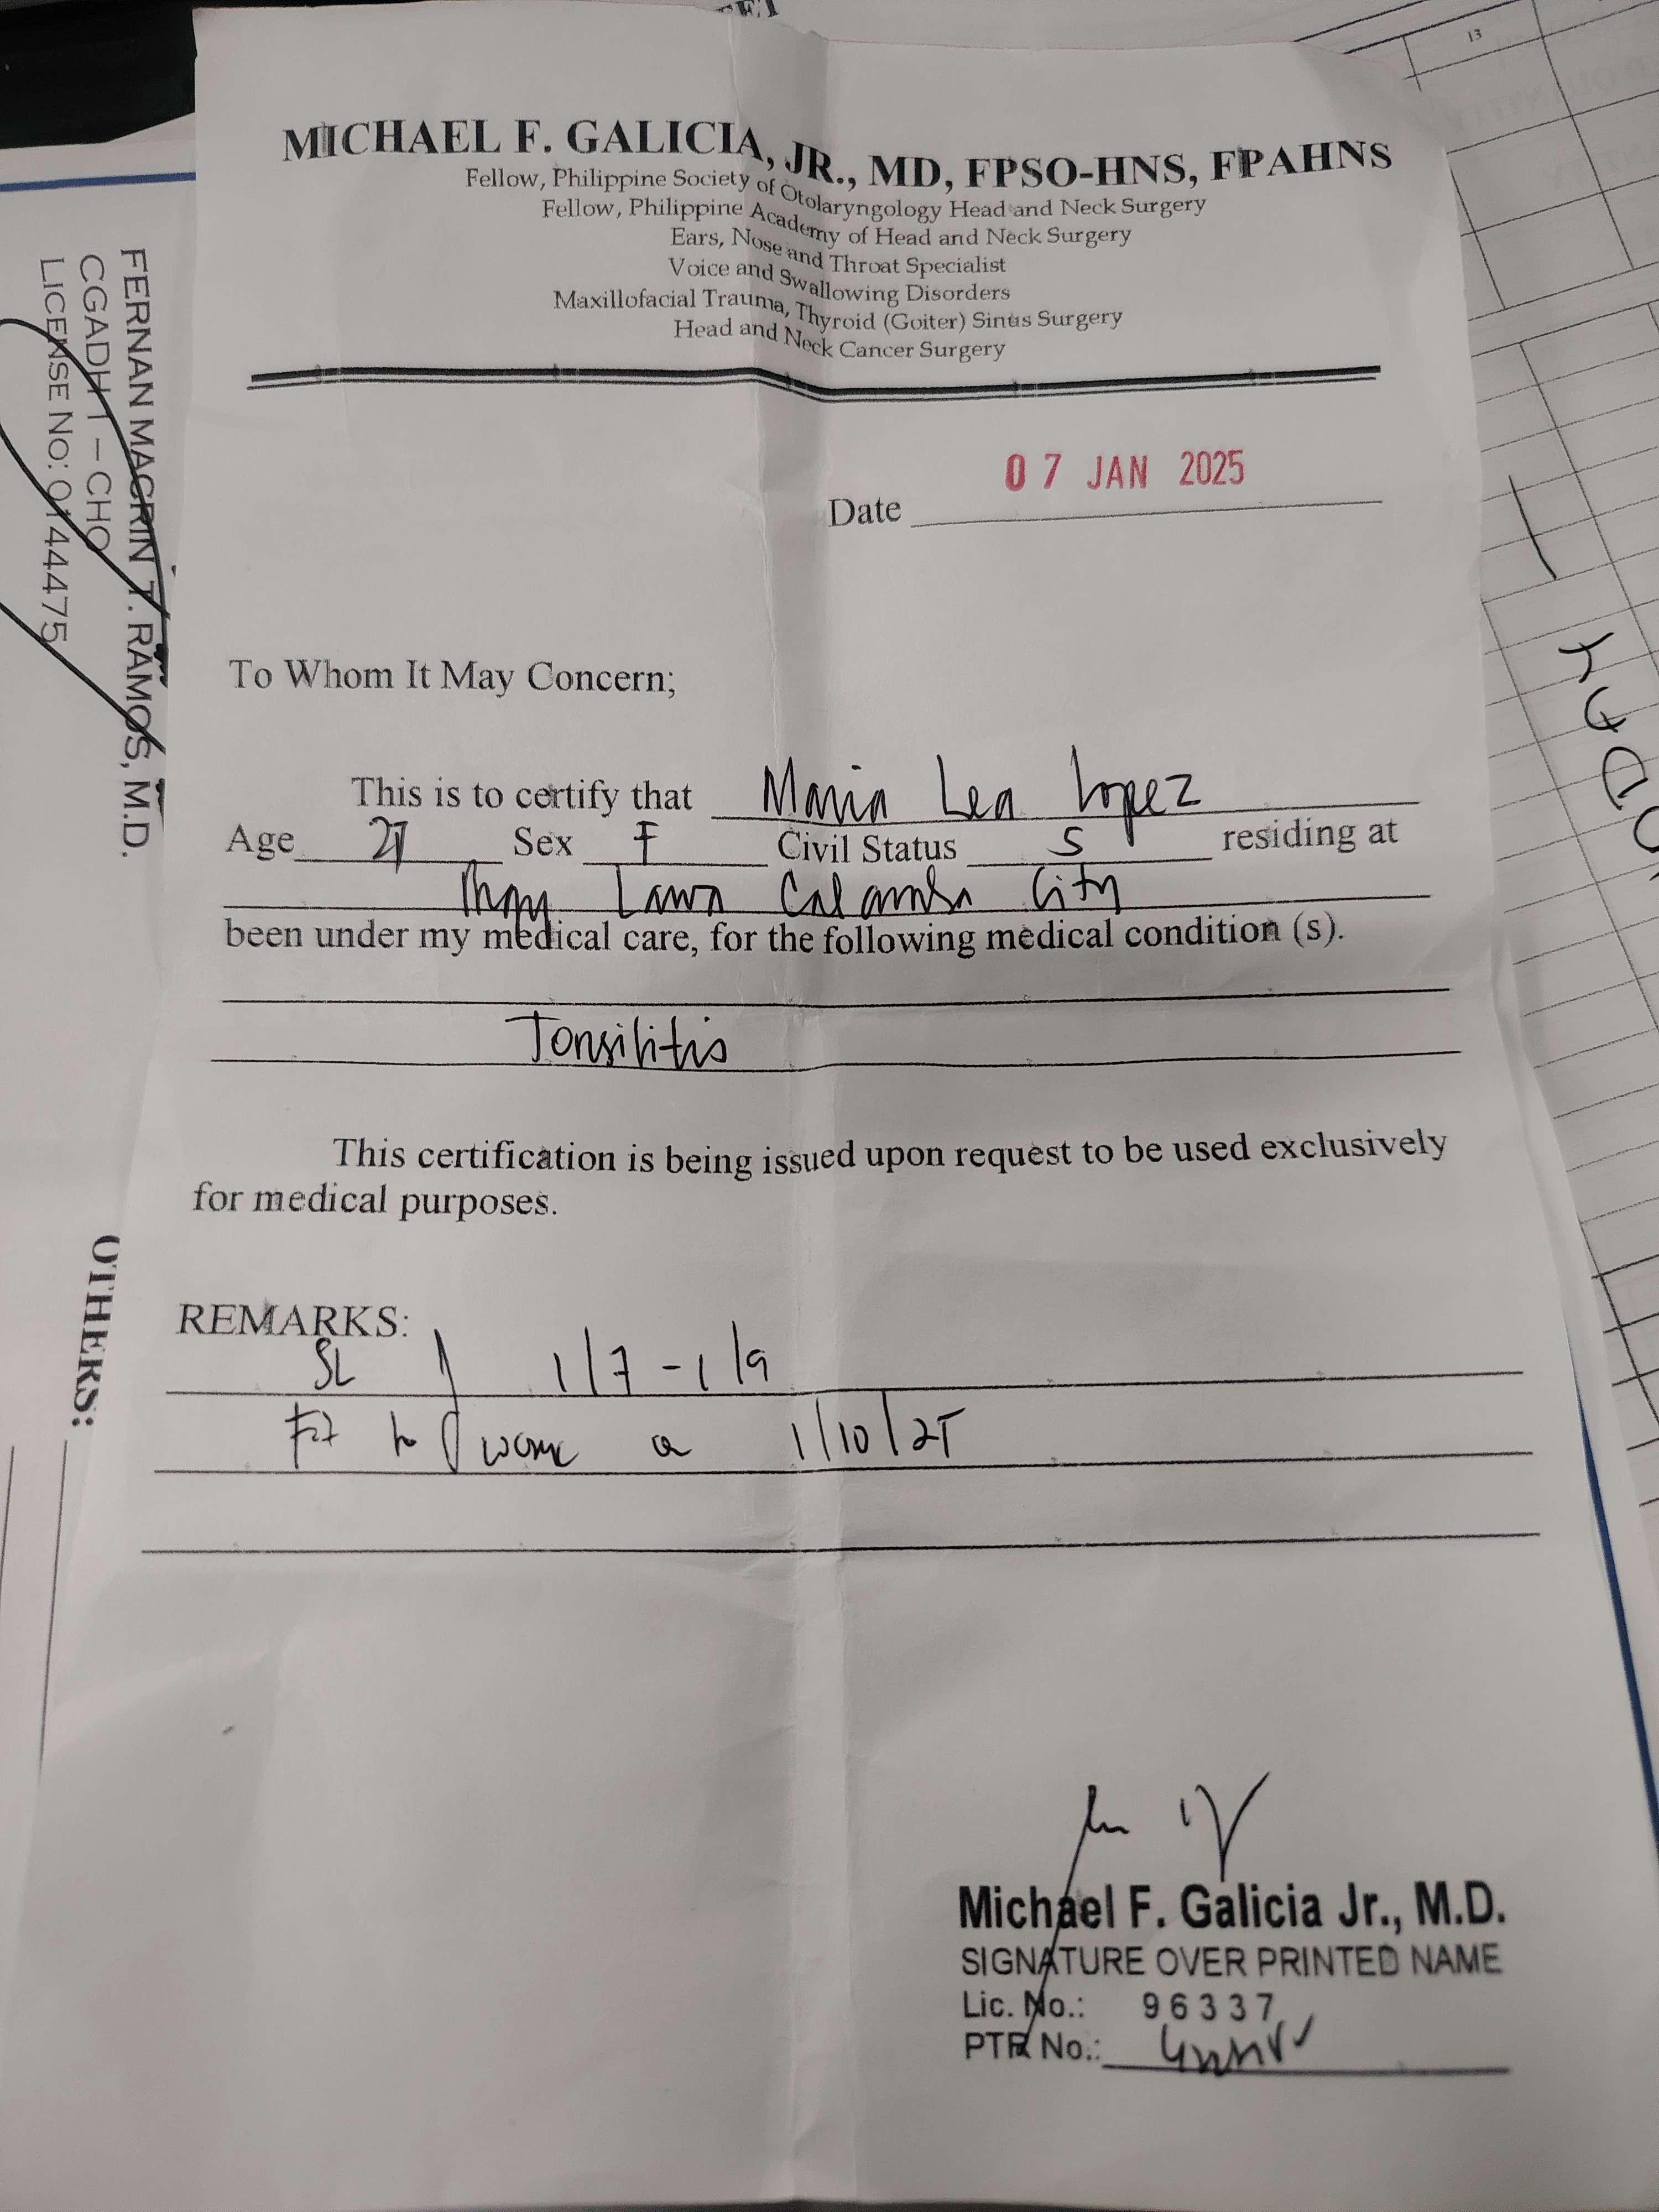 MICHAEL F. GALICIA, JR., MD, FPSO-HNS, FPAHNS
Fellow, Philippine Society of Otolaryngology Head and Neck Surgery
Fellow, Philippine Academy of Head and Neck Surgery
Ears, Nose and Throat Specialist
Voice and Swallowing Disorders
Maxillofacial Trauma, Thyroid (Goiter) Sinus Surgery
Head and Neck Cancer Surgery
07 JAN 2025
Date
To Whom It May Concern;
This is to certify that Maria Lea Lopez
Age Sex F Civil Status S residing at
Brgy Lawa Calamba City
been under my medical care, for the following medical condition (s).
Tonsilitis
This certification is being issued upon request to be used exclusively
for medical purposes.
REMARKS:
SL 1/7 - 1/9
Fit to work 1/10/25
Michael F. Galicia Jr., M.D.
SIGNATURE OVER PRINTED NAME
Lic. No.: 96337
PTR No.:
FERNAN MAGRIN T. RAMOS, M.D.
CGADH 1 - CHO
LICENSE No: 0144475
OTHERS:
13